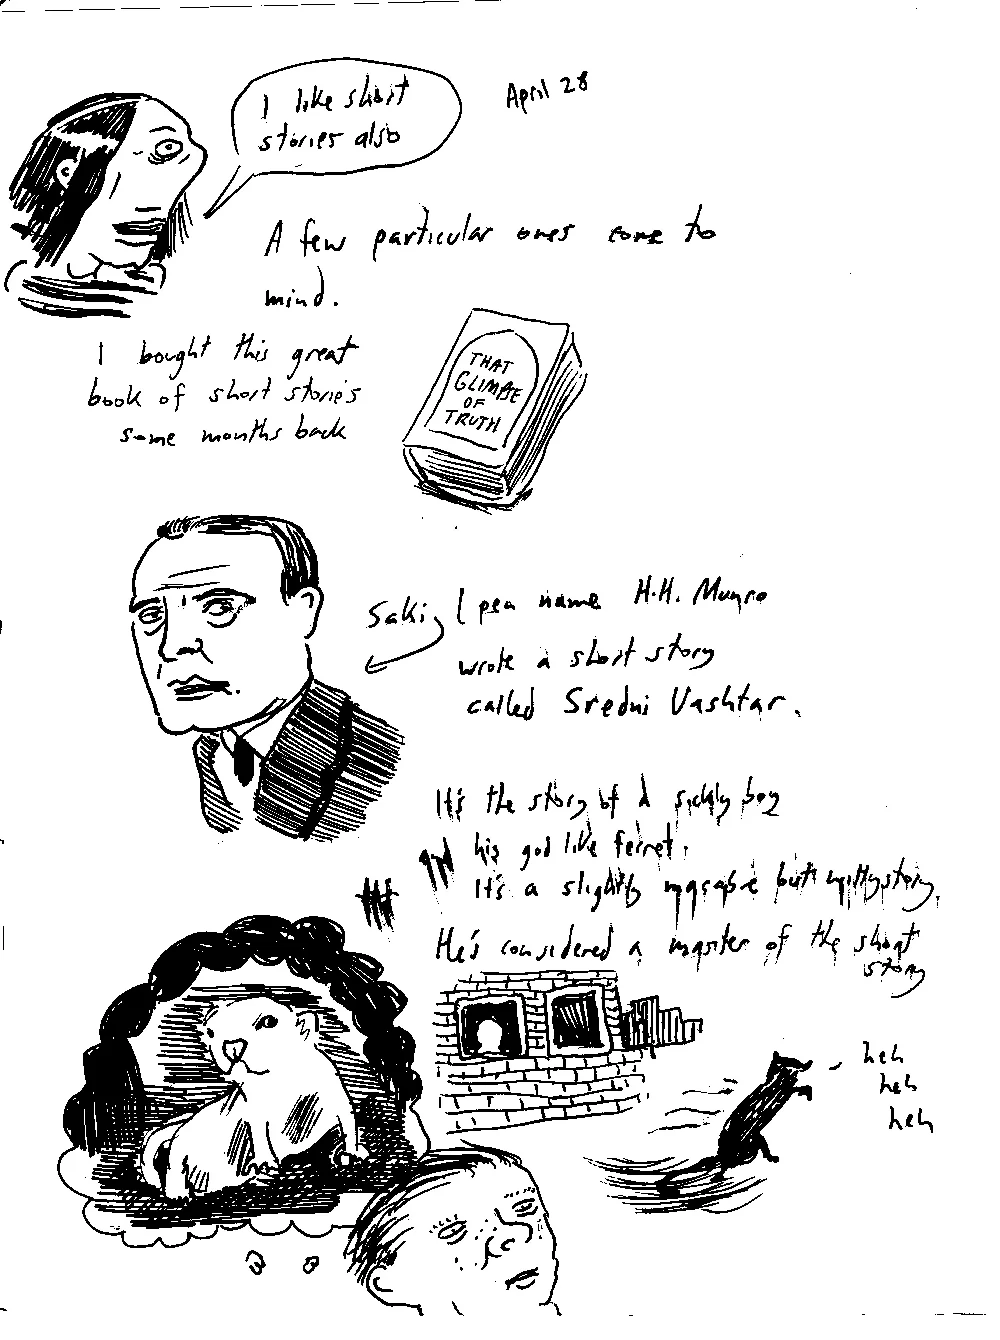 I like short
stories also
April 28
A few particular ones come to
mind.
I bought this great
book of short storie's
some months back
THAT
GLIMPSE
OF
TRUTH
Saki, (pen name H.H. Munro
wrote a short story
called Sredni Vashtar.
It's the story of a sickly boy
his god like ferret.
It's a slightly macabre but witty story.
He's considered a master of the short
story
heh
heh
heh